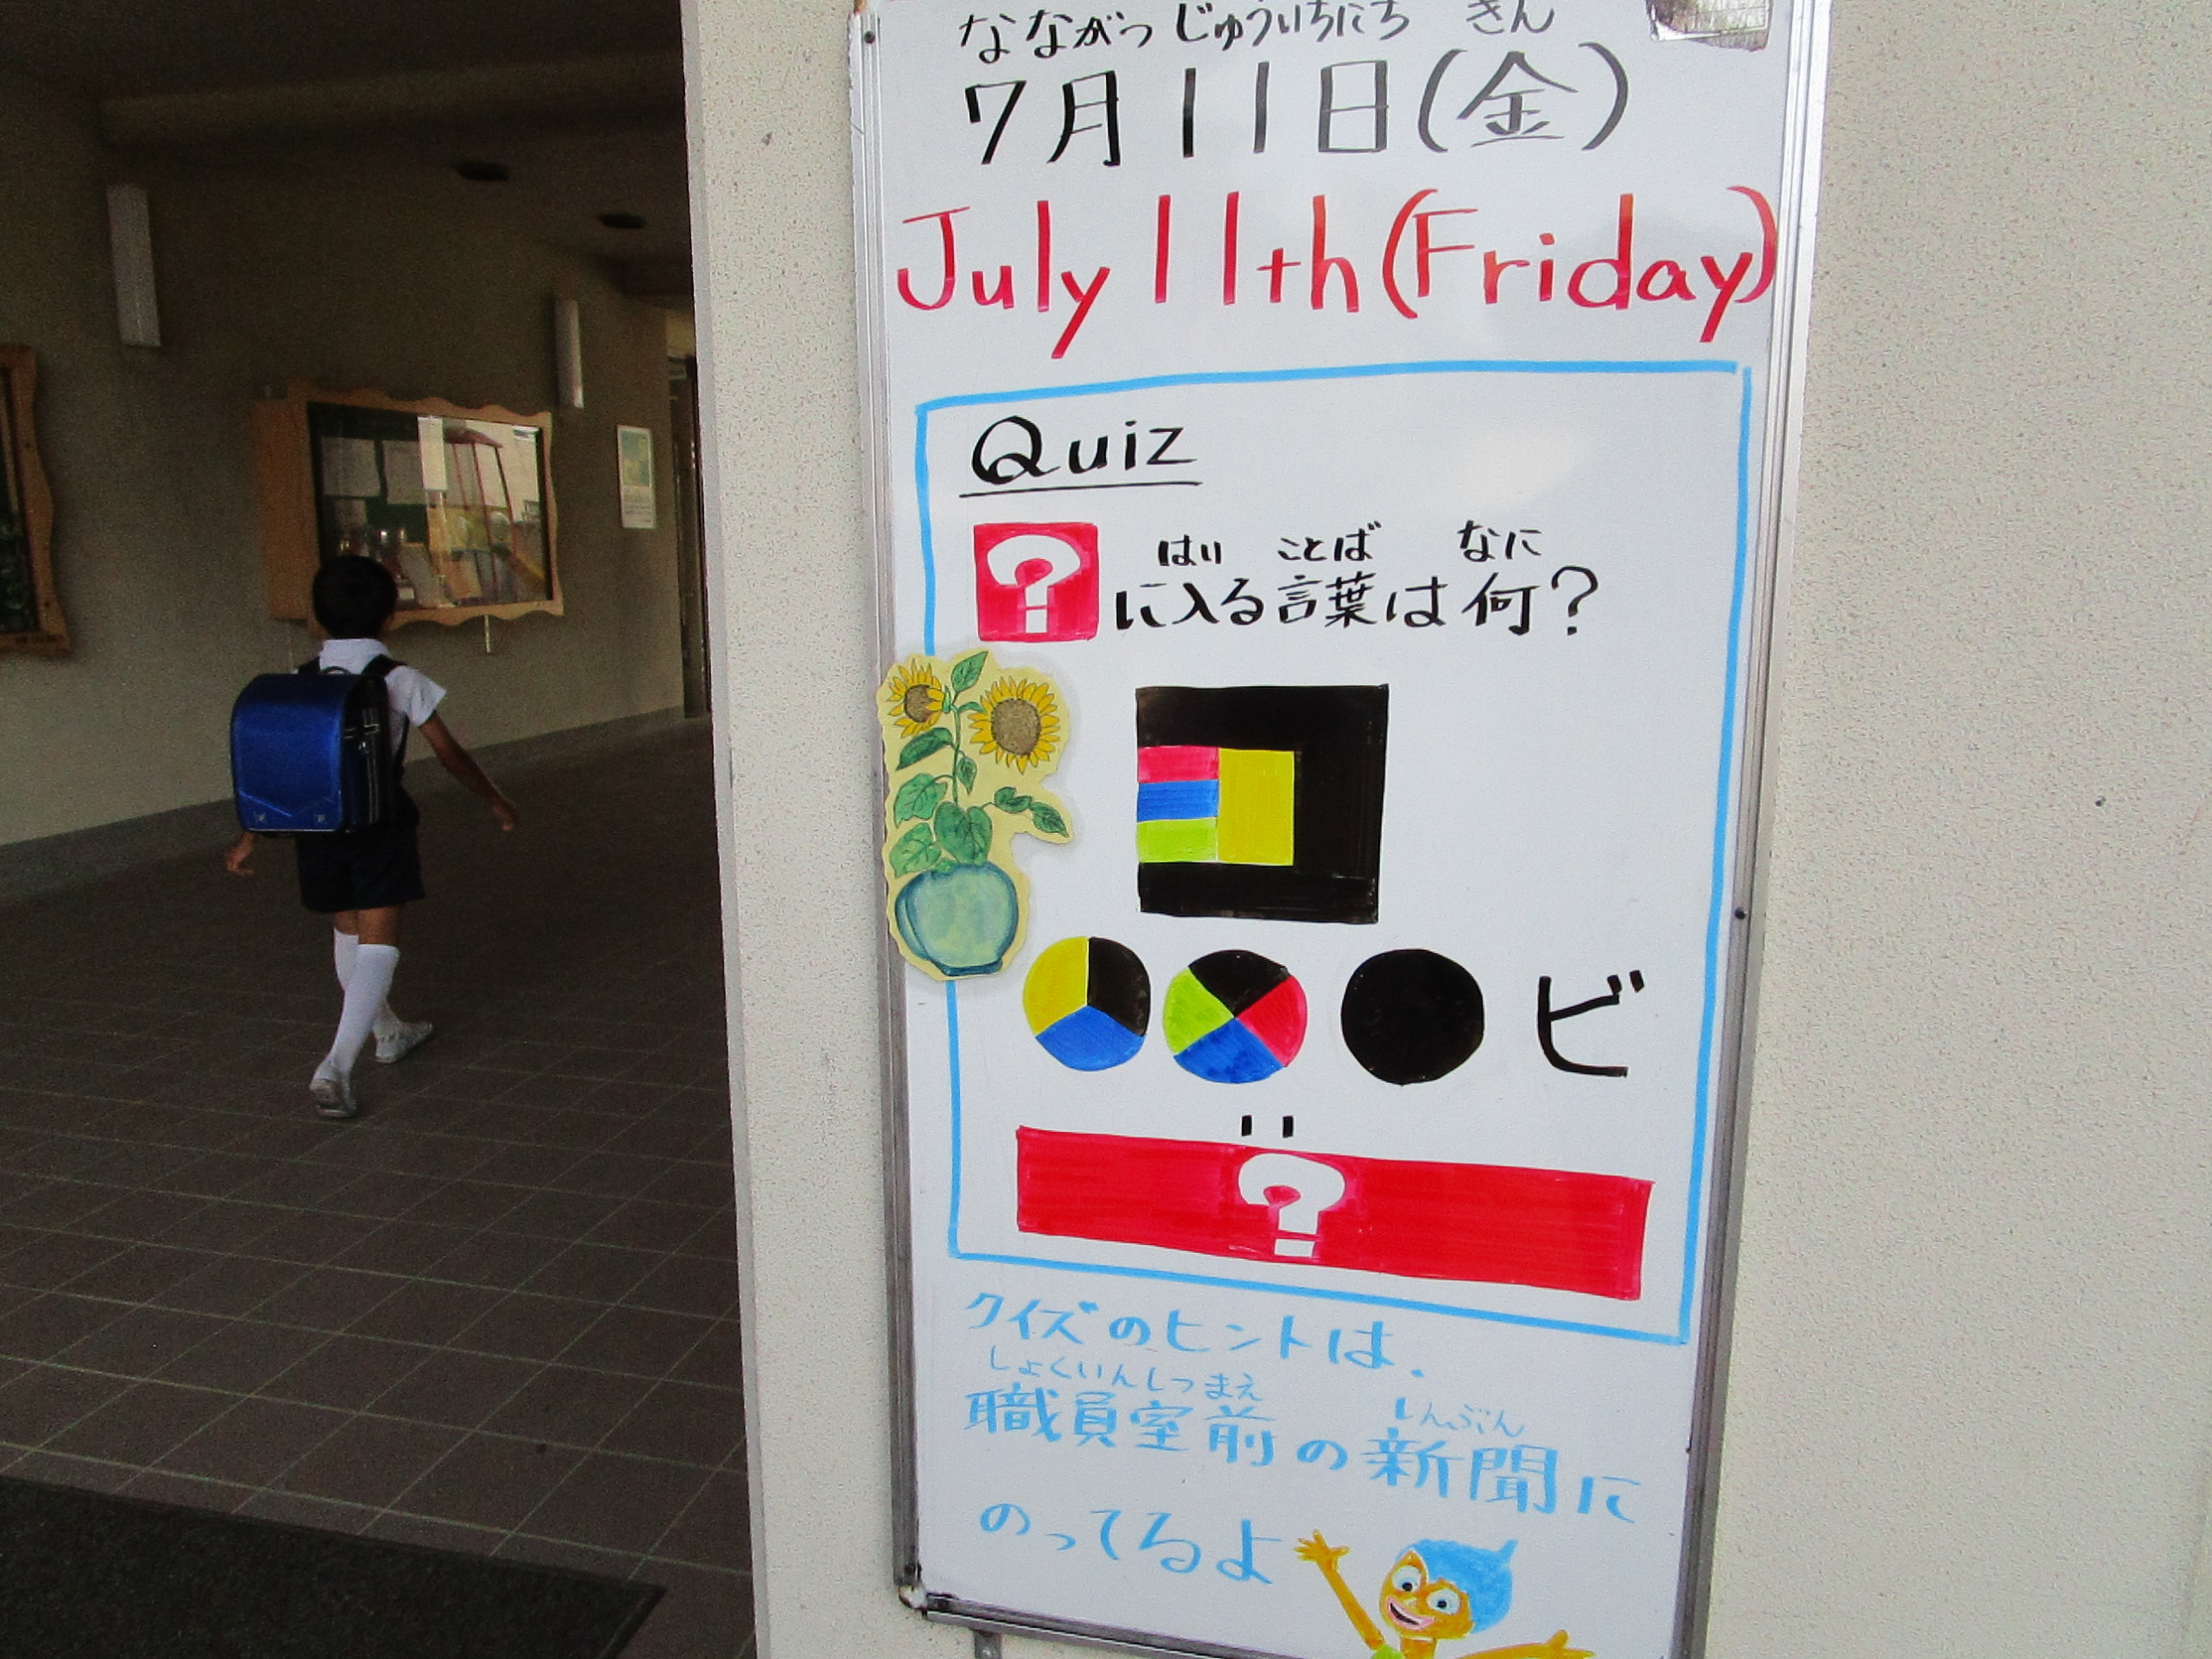 なながつ じゅういちにち きん
7月11日(金)
July 11th(Friday)
Quiz
はい ことば なに
?に入る言葉は何?
ビ
?
クイズのヒントは、
しょくいんしつまえ しんぶん
職員室前の新聞に
のってるよ